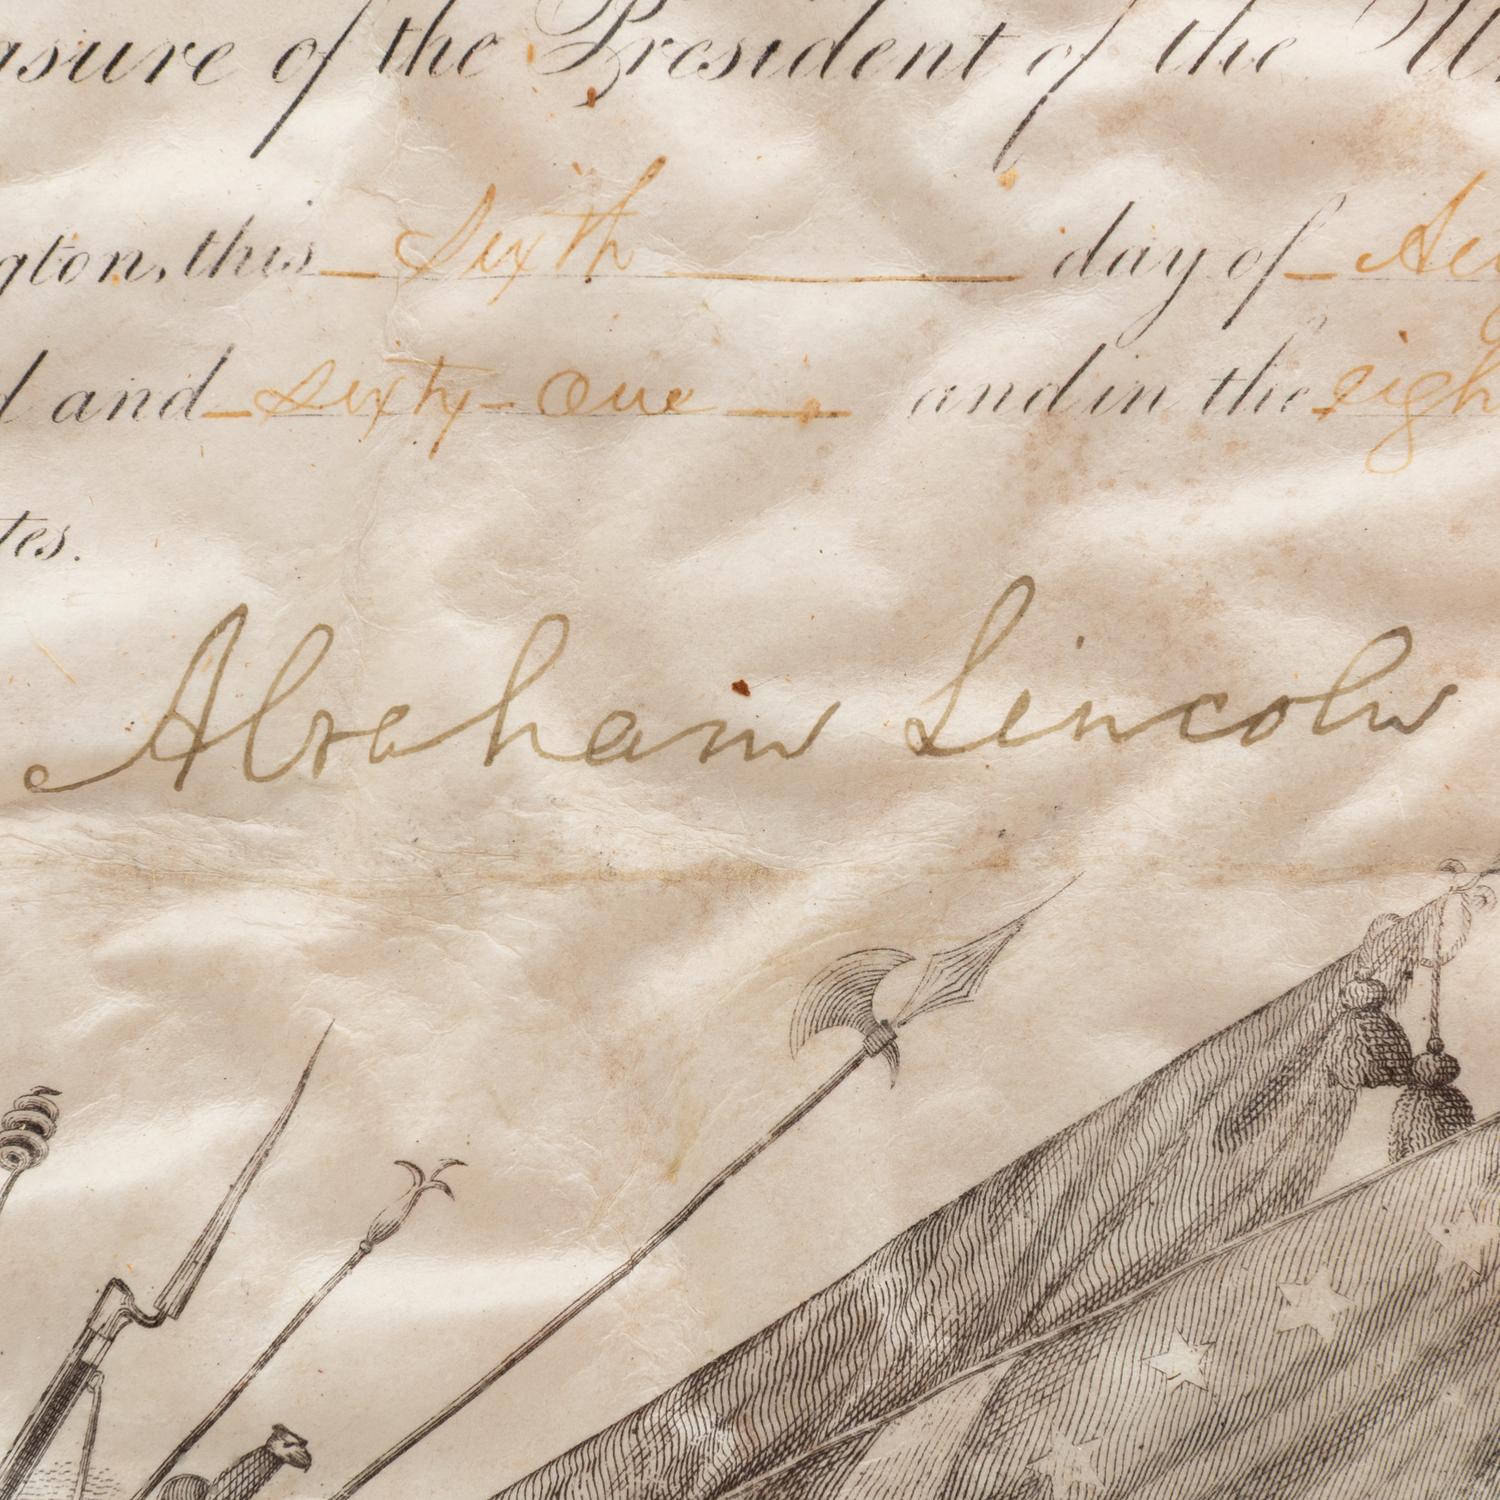 asure of the President of the U
gton, this sixth day of
d and sixty-one and in the eigh
tes.
Abraham Lincoln